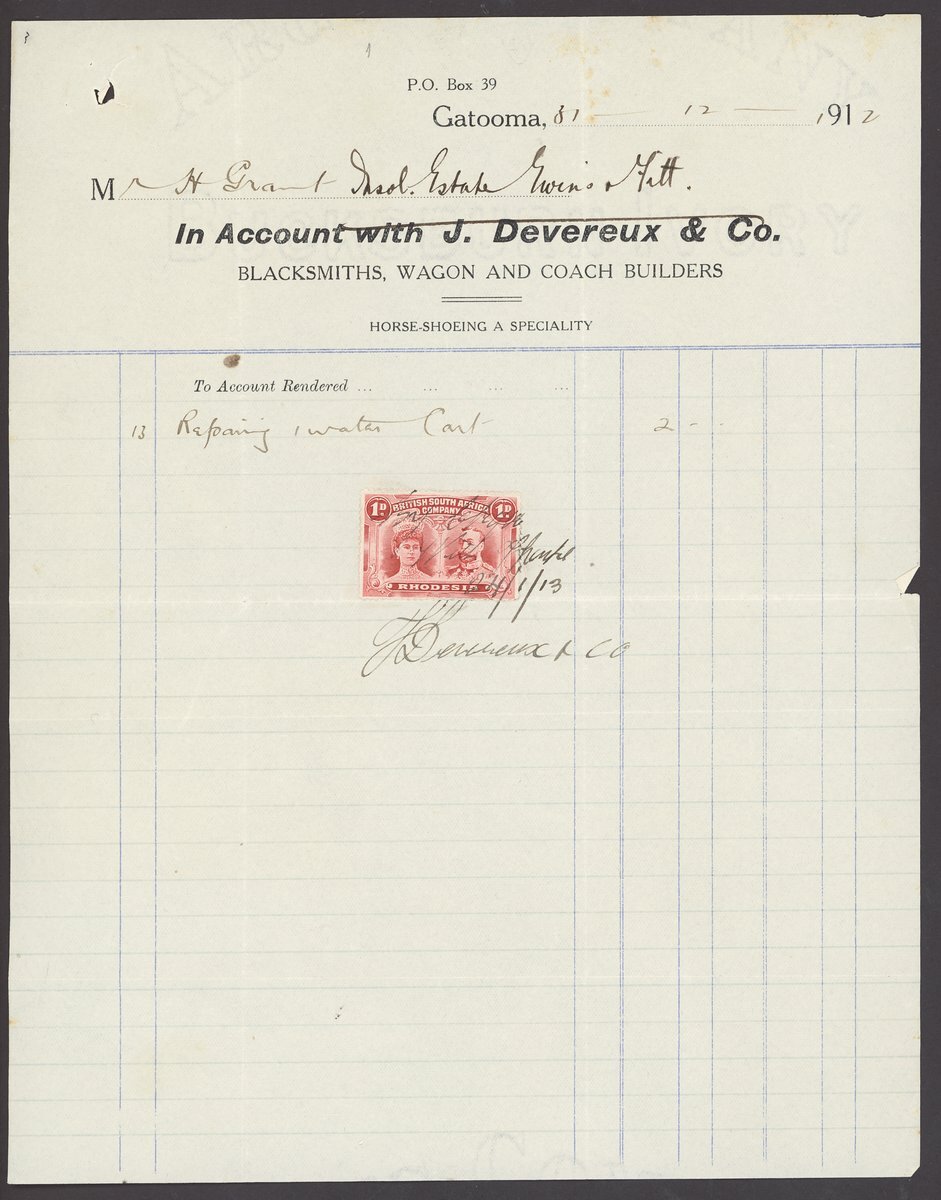 P.O. Box 39
Gatooma, 31 — 12 — 1912
Mr H Grant Insol. Estate Ewins &
In Account with J. Devereux & Co.
BLACKSMITHS, WAGON AND COACH BUILDERS
HORSE-SHOEING A SPECIALITY
To Account Rendered ... ... ... ...
13 Repairing 1 water Cart 2 - -
1D. BRITISH SOUTH AFRICA COMPANY 1D.
RHODESIA
24/1/13
J Devereux & Co